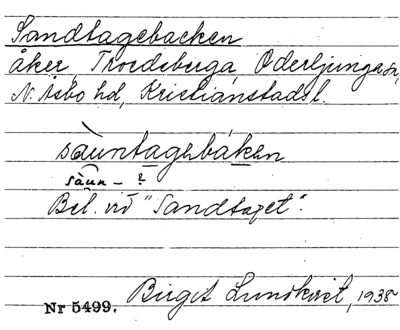 Sandtagebacken
åker, Troedsberga, Oderljunga sn,
N. Åsbo hd, Kristianstads l.
sàuntagəbákən
sàun – ?
Bel. vid "Sandtaget".
Birgit Lundkvist, 1938
Nr 5499.